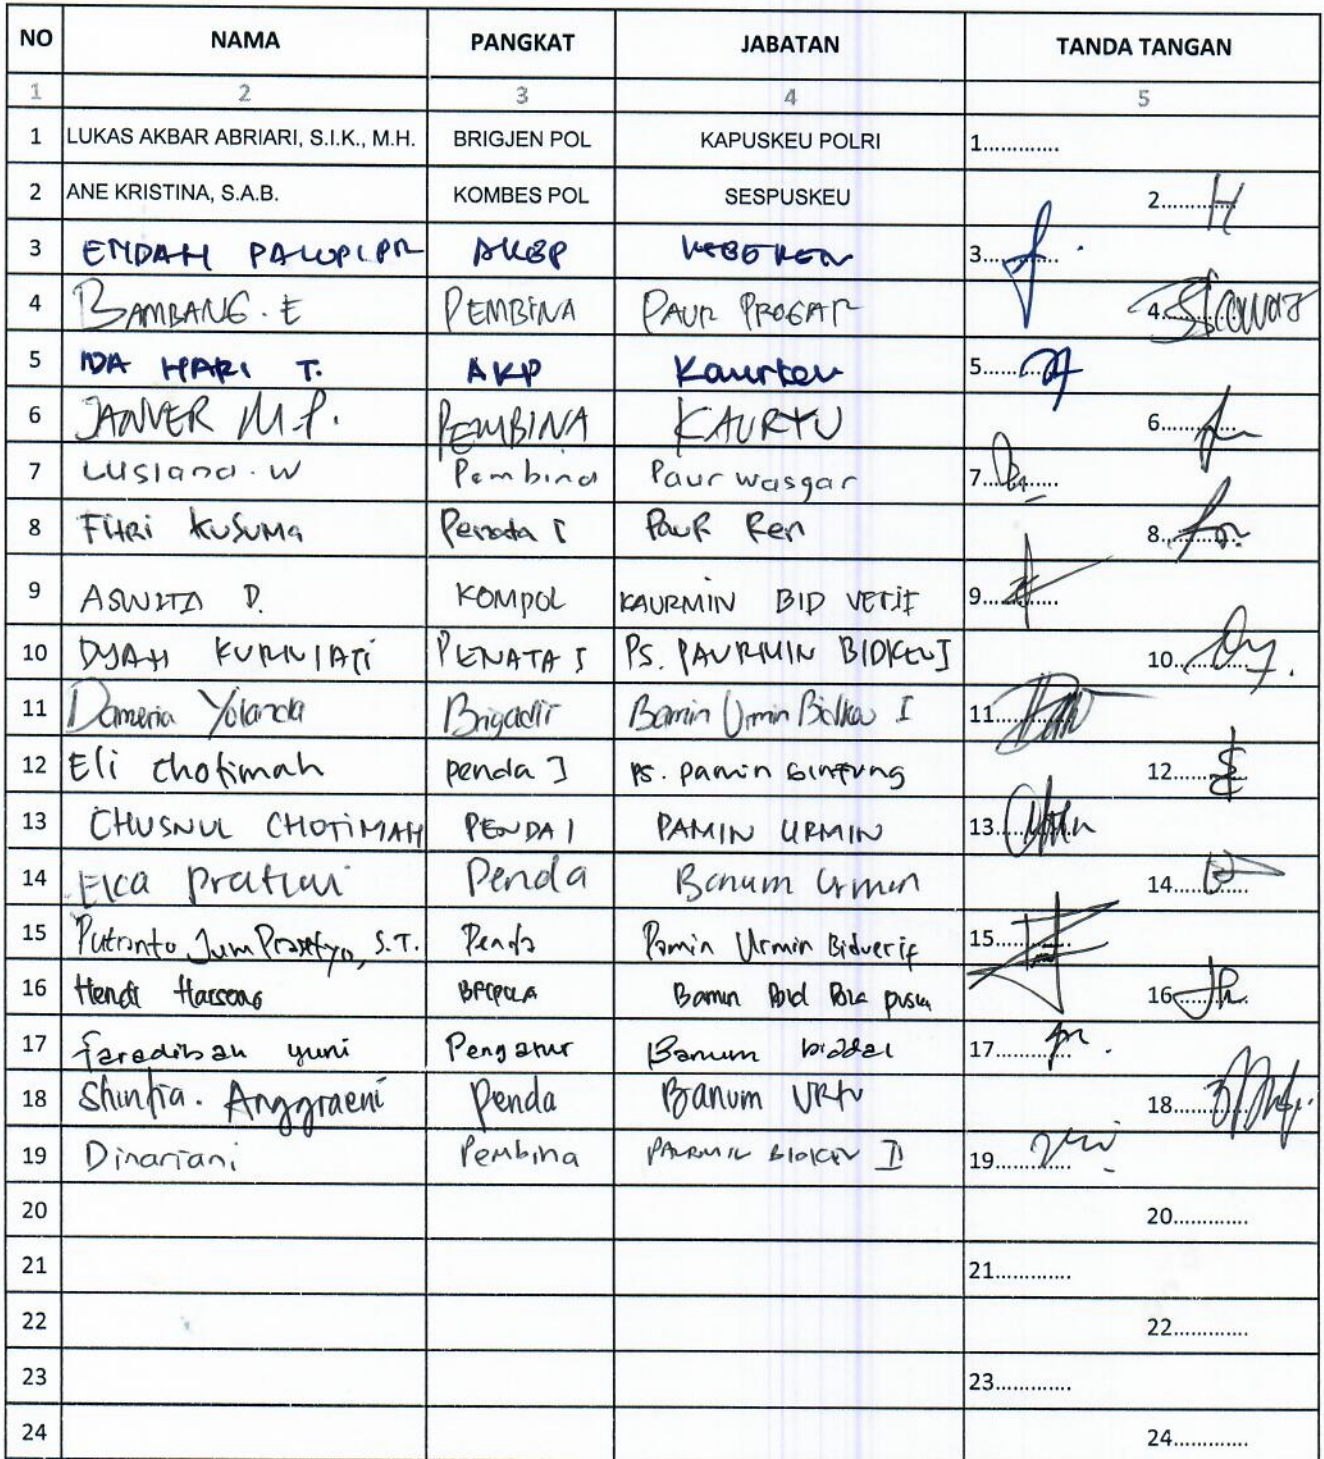 NO NAMA PANGKAT JABATAN TANDA TANGAN
1 2 3 4 5
1 LUKAS AKBAR ABRIARI, S.I.K., M.H. BRIGJEN POL KAPUSKEU POLRI 1.............
2 ANE KRISTINA, S.A.B. KOMBES POL SESPUSKEU 2.............
3 ENDAH PALUPI PR AKBP 3.............
4 BAMBANG. E PEMBINA PAUR PROGAR 4.............
5 IDA HARI T. AKP Kaurkeu 5.............
6 JANVER M.P. PEMBINA KAURTU 6.............
7 Lusiana. W Pembina Paur wasgar 7.............
8 FITRI KUSUMA Penata I PauR Ren 8.............
9 ASWITA D. KOMPOL KAURMIN BID VERIF 9.............
10 DYAH KURNIATI PENATA I PS. PAURMIN BIDKEU I 10.............
11 Dameria Yolanda Brigadir Bamin Urmin Bidkeu I 11.............
12 Eli Chotimah penda I ps. pamin 12.............
13 CHUSNUL CHOTIMAH PENDA I PAMIN URMIN 13.............
14 Pratiwi Penda Banum Urmin 14.............
15 Putranto Jum Prasetyo, S.T. Penda Pamin Urmin Bidverif 15.............
16 Hendi Bamin 16.............
17 faradibah yuni Pengatur Banum 17.............
18 Shintia. Anggraeni Penda Banum URTU 18.............
19 Dinariani Pembina PAURMIN BIDKEU II 19.............
20 20.............
21 21.............
22 22.............
23 23.............
24 24.............